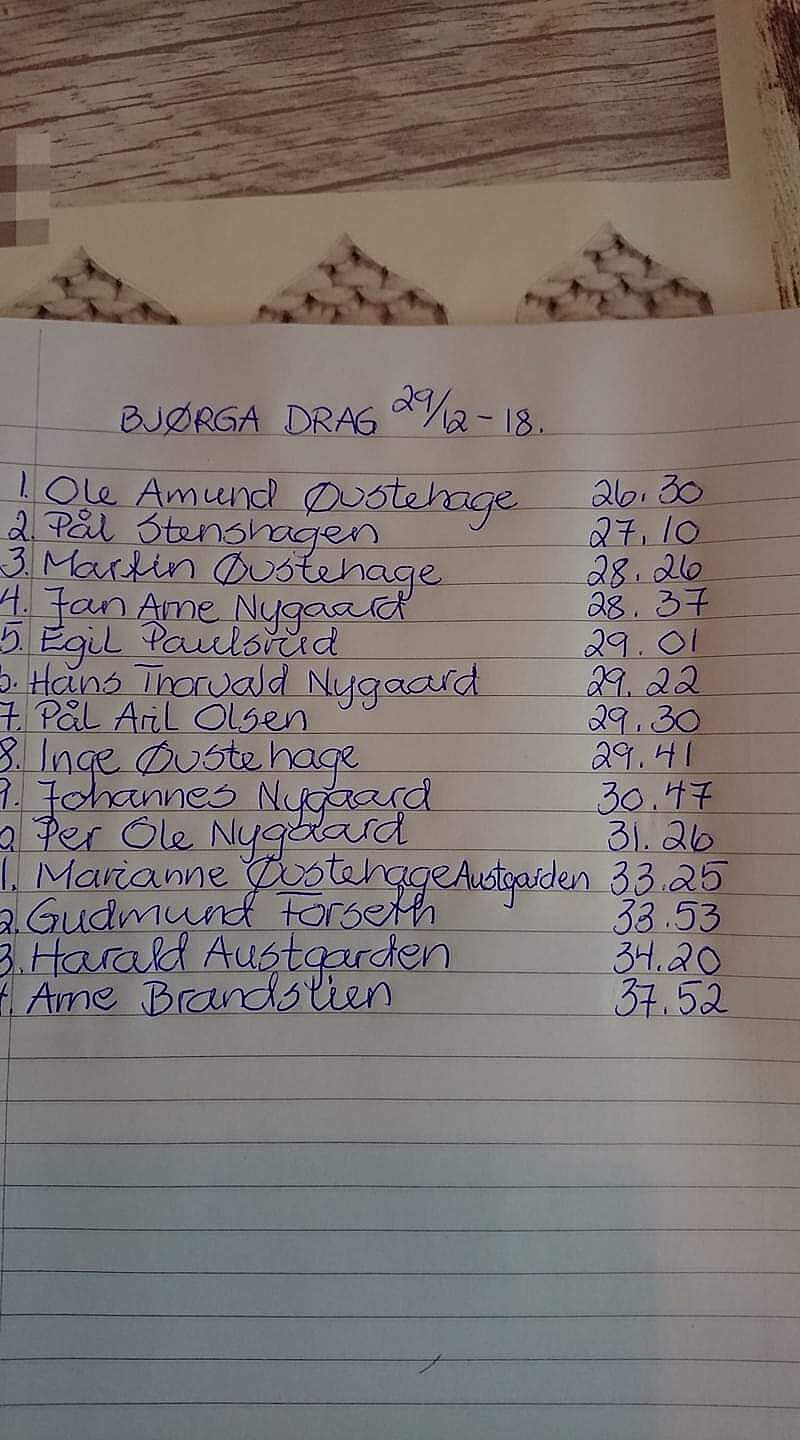 BJØRGA DRAG 29/12-18.
1. Ole Amund Øvstehage 26.30
2. Pål Stenshagen 27.10
3. Martin Øvstehage 28.26
4. Jan Arne Nygaard 28.37
5. Egil Paulsrud 29.01
6. Hans Thorvald Nygaard 29.22
7. Pål Aril Olsen 29.30
8. Inge Øvstehage 29.41
9. Johannes Nygaard 30.47
0 Per Ole Nygaard 31.26
1. Marianne Øvstehage Austgarden 33.25
2. Gudmund Forseth 33.53
3. Harald Austgarden 34.20
4. Arne Brandstien 37.52